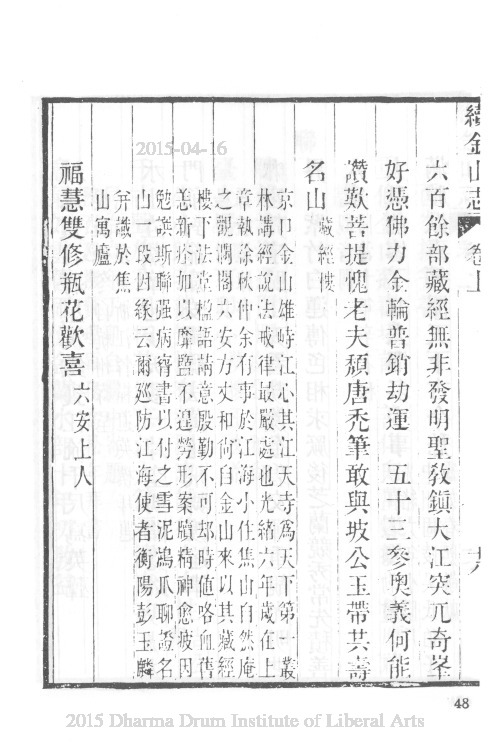 續金山志 卷上 六
六百餘部藏經無非發明聖教鎭大江突兀奇峯
好憑佛力金輪普銷劫運 五十三參奧義何能
讚歎菩提愧老夫頹唐禿筆敢與坡公玉帶共壽
名山 藏經樓
京口金山雄峙江心其江天寺爲天下第一叢
林講經說法戒律最嚴處也光緒六年歲在上
章執徐秋仲余有事於江海小住焦山自然庵
之觀瀾閣六安方丈和尙自金山來以其藏經
樓下法堂楹語請意殷勤不可却時値咯血舊
恙新痊如以磨盬不遑勞形案牘精神愈疲因
勉譔斯聯强病腕書以付之雪泥鴻爪聊證名
山一段因緣云爾巡防江海使者衡陽彭玉麟
幷識於焦
山寓廬
福慧雙修瓶花歡喜 六安上人
2015-04-16
48
2015 Dharma Drum Institute of Liberal Arts